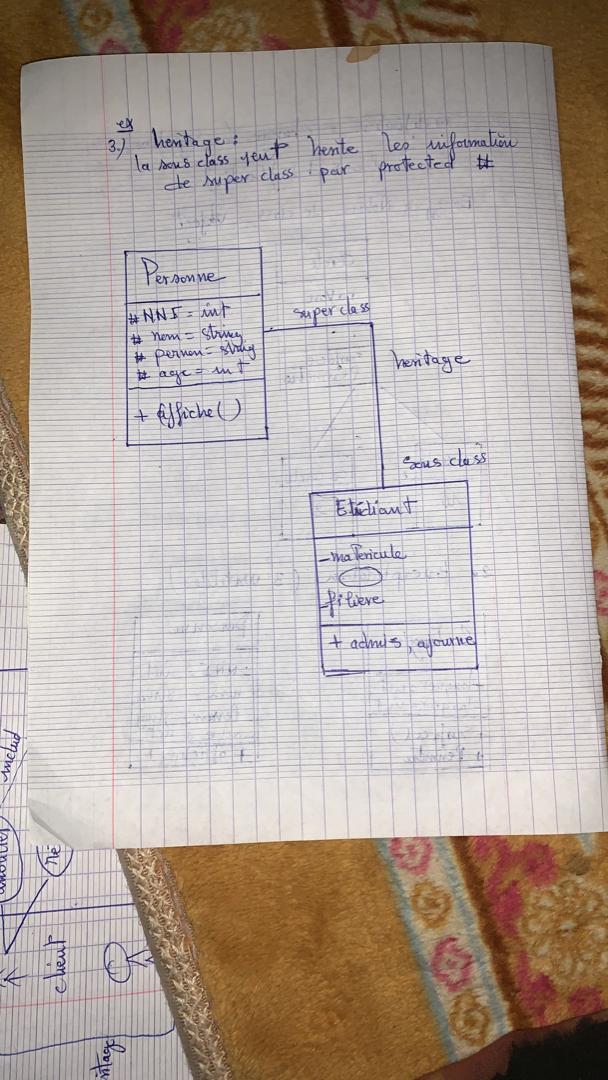 ex
3.) heritage :
la sous class peut herite les information
de super class par protected #
Personne
# NNI = int
# nom = string
# pernon = strug
# age = int
+ Affiche()
super class
heritage
sous class
Etidiant
- matericule
- filiere
+ admis, ajourne
includ
client